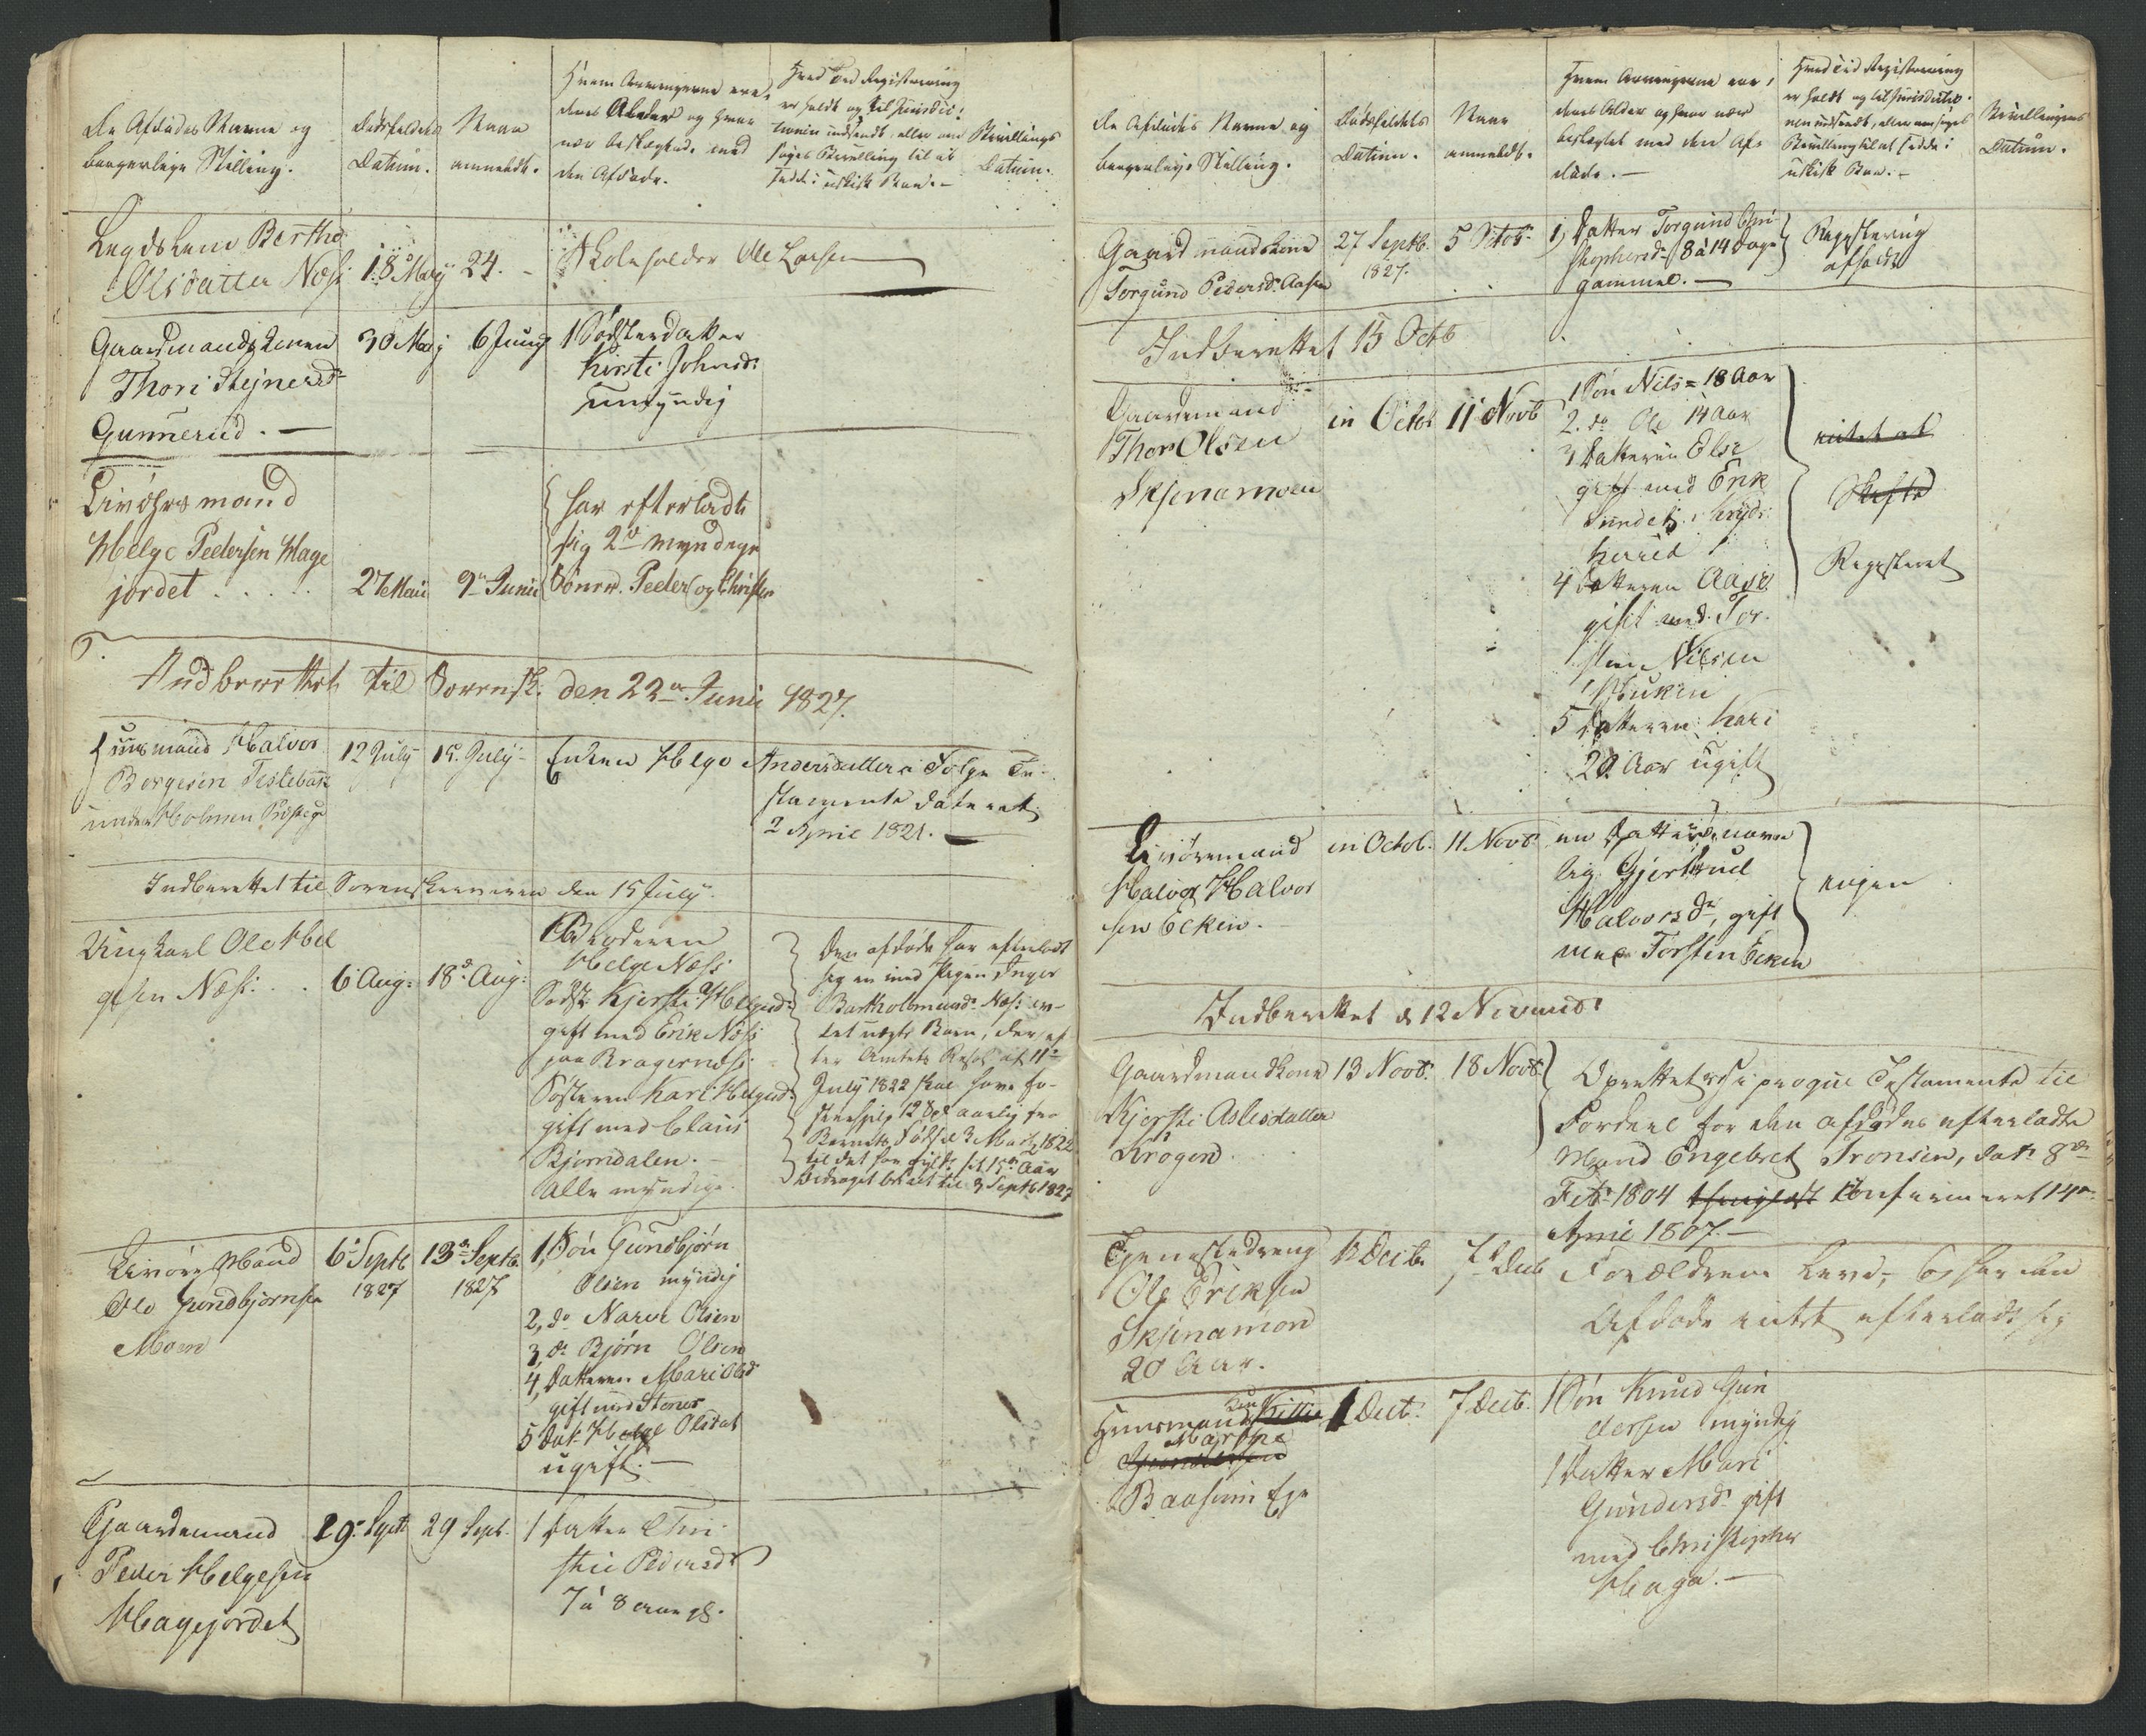 De Afdødes Navne og
borgerlige Stilling.
Dødsfaldets
Datum.
Naar
anmeldt.
Hvem Arvingerne ere,
deres Alder og hvor
nær beslægtede med
den Afdøde.
Hvad Tid Registrering
er holdt og til
indsendt, eller om
søges Bevilling til at
sidde i uskift Boe. -
Bevillings
Datum.
Legdslem Berthe
Olsdatter Næss
18 May
24. -
Skoleholder Ole Larsen
Gaardmandskonen
Thori Stejnersd.
Gunnerud. -
30 May
6 Juny
1 Søsterdatter
Kirsti Johnsd.
umyndig
Livøresmand
Helge Pedersen Hage
jordet . . . . .
27 Maii
9de Junii
har efterladt
sig 2de myndige
Sønner. Peder og Christen
Indberettet til Sorensk. den 22de Junii 1827.
Huusmand Halvor
Borgersen Teslebak
under Holmen
12 July
15. July
Enken Helge Andersdatter i Følge Te-
stamente dateret
2 April 1821. -
Indberettet til Sorenskriveren den 15 July.
Ungkarl Ole Hel
gesen Næss. . .
6 Aug:
18de Aug:
Broderen
Helge Næss
Søst. Kjersti Helgesd.
gift med Erik Næss
paa Bragernæss
Søsteren Kari Helgesd.
gift med Claus
Bjørndalen. -
alle myndige.
Den afdøde har efterladt
sig en med Pigen Inger
Bartholomæusd. Næss av-
let uægte Barn, der ef
ter Amtets Resol. af 11te
July 1822 skal have Fo-
sterhjelp 12 Spd aarlig fra
Barnets Fødsel 3 Marts 1822
til det har fyldt sit 15de Aar
Bidraget betalt til 3 Septb 1827
Livøre Mand
Ole Gundbjørnsen
Moen
6te Septb
1827
13de Septb.
1827
1, Søn Gundbjørn
Olsen myndig
2, do Narve Olsen
3, do Bjørn Olsen
4, Datteren Mari Olsd
gift med Stener
5 Dat. Helge Olsdat
ugift. -
Gaardmand
Peder Helgesen
Hagejordet
29. Septb
29 Sept.
1 Datter Chri
stie Pedersd
7 à 8 aar gl.
De Afdødes Navne og
borgerlige Stilling.
Dødsfaldets
Datum.
Naar
anmeldt.
Hvem Arvingerne ere,
deres Alder og hvor nær
beslægtet med den Af-
døde. -
Hvad Tid Registrering
er holdt og til
indsendt, eller om søges
Bevilling til at sidde i
uskift Boe. -
Bevillingens
Datum.
Gaardmandskone
Torgund Pedersd. Aasen
27 Septb.
1827.
5 Octob.
1, Datter Torgund Chri-
stophersd. 8 à 14 Dage
gammel. -
Registering
afholdt
Indberettet 15 Octb
Gaardmand
Thor Olsen
Skjenamoen
in Octob
11 Novb
1 Søn Nils = 18 Aar
2. do Ole 14 Aar
3 Datteren Else
gift med Erik
Sundet i Kryds
herred
4 Datteren Aase
gift med Tor
sten Nilsen
5 Datteren Kari
20 Aar ugift
intet at
Skifte
Registeret
Livøremand
Halvor Halvor
sen Ecken.
in Octob.
11 Novb.
en Datter, navn
lig Gjertrud
Halvorsdr, gift
med Torsten Ecken
ingen
Indberettet d 12 Novemb.
Gaardmandskone
Kjersti Aslesdatter
Krogen
13 Novb.
18 Novb.
Oprettet reciproque Testamente til
Fordeel for den afdødes efterladte
Mand Engebret Tronsen, dat. 8de
Feb. 1804 Confirmeret 14de
April 1807. -
Tjenestedreng
Ole Eriksen
Skjenamoen
20 Aar.
1 Decb.
7de Decb
Forældrene leve, og har den
Afdøde intet efterladt sig
Huusmand
Marthe
Gundersen
Baasum Eje
1 Decb.
7 Decb.
1 Søn Knud Gun
dersen myndig
1 Datter Mari
Gundersd. gift
med Christopher
Haga. -